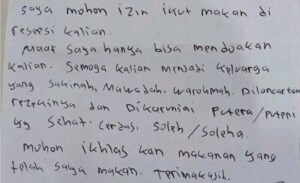 saya mohon izin ikut makan di
resepsi kalian.
Maaf saya hanya bisa mendoakan
kalian. Semoga kalian menjadi keluarga
yang sakinah, Mawadah, warohmah. Dilancarkan
rezekinya dan Dikaruniai Putera/Puteri
yg Sehat. Cerdas, Soleh / Soleha.
Mohon ikhlas kan makanan yang
telah saya makan. Terimakasih.